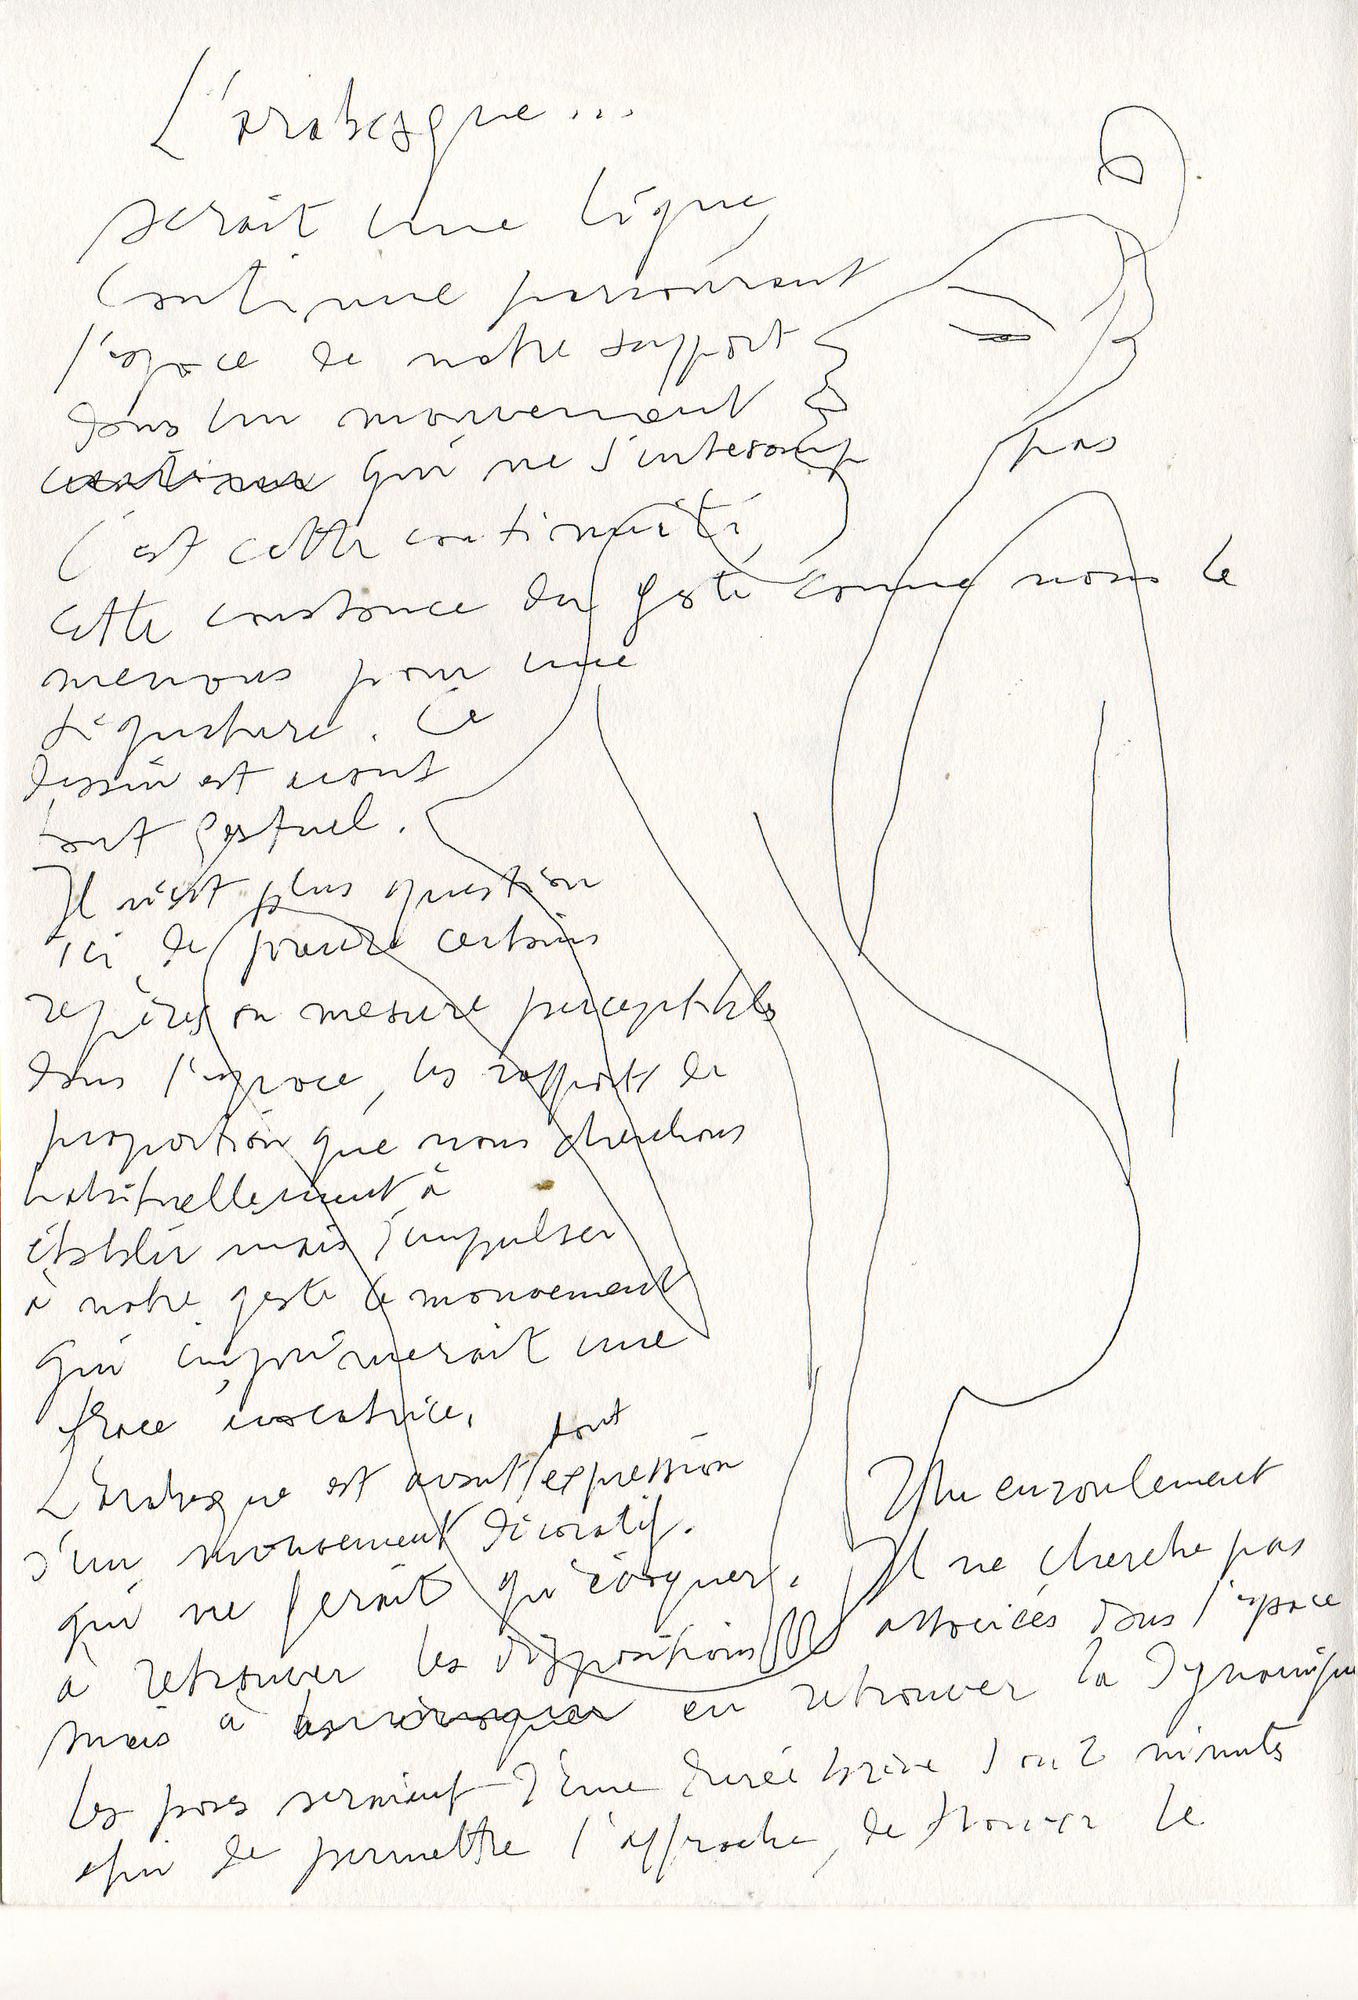 L'arabesque...
serait une ligne,
continue parcourant
l'espace de notre support
dans un mouvement
continu qui ne s'interromp pas
C'est cette continuité,
cette constance du geste comme nous le
menons pour une
signature. Ce
dessin est avant
tout gestuel.
Il n'est plus question
ici de prendre certains
repères ou mesure perceptibles
dans l'espace, les rapports de
proportion que nous cherchons
habituellement à
établir mais d'impulser
à notre geste le mouvement
qui imprimerait une
trace évocatrice.
L'arabesque est avant tout expression
d'un mouvement décoratif.
qui ne ferait qu'évoquer. Un enroulement
Il ne cherche pas
à retrouver les dispositions associés dans l'espace
mais à en retrouver la dynamique
les poses seraient d'une durée brève 1 ou 2 minutes
afin de permettre l'approche, de trouver le